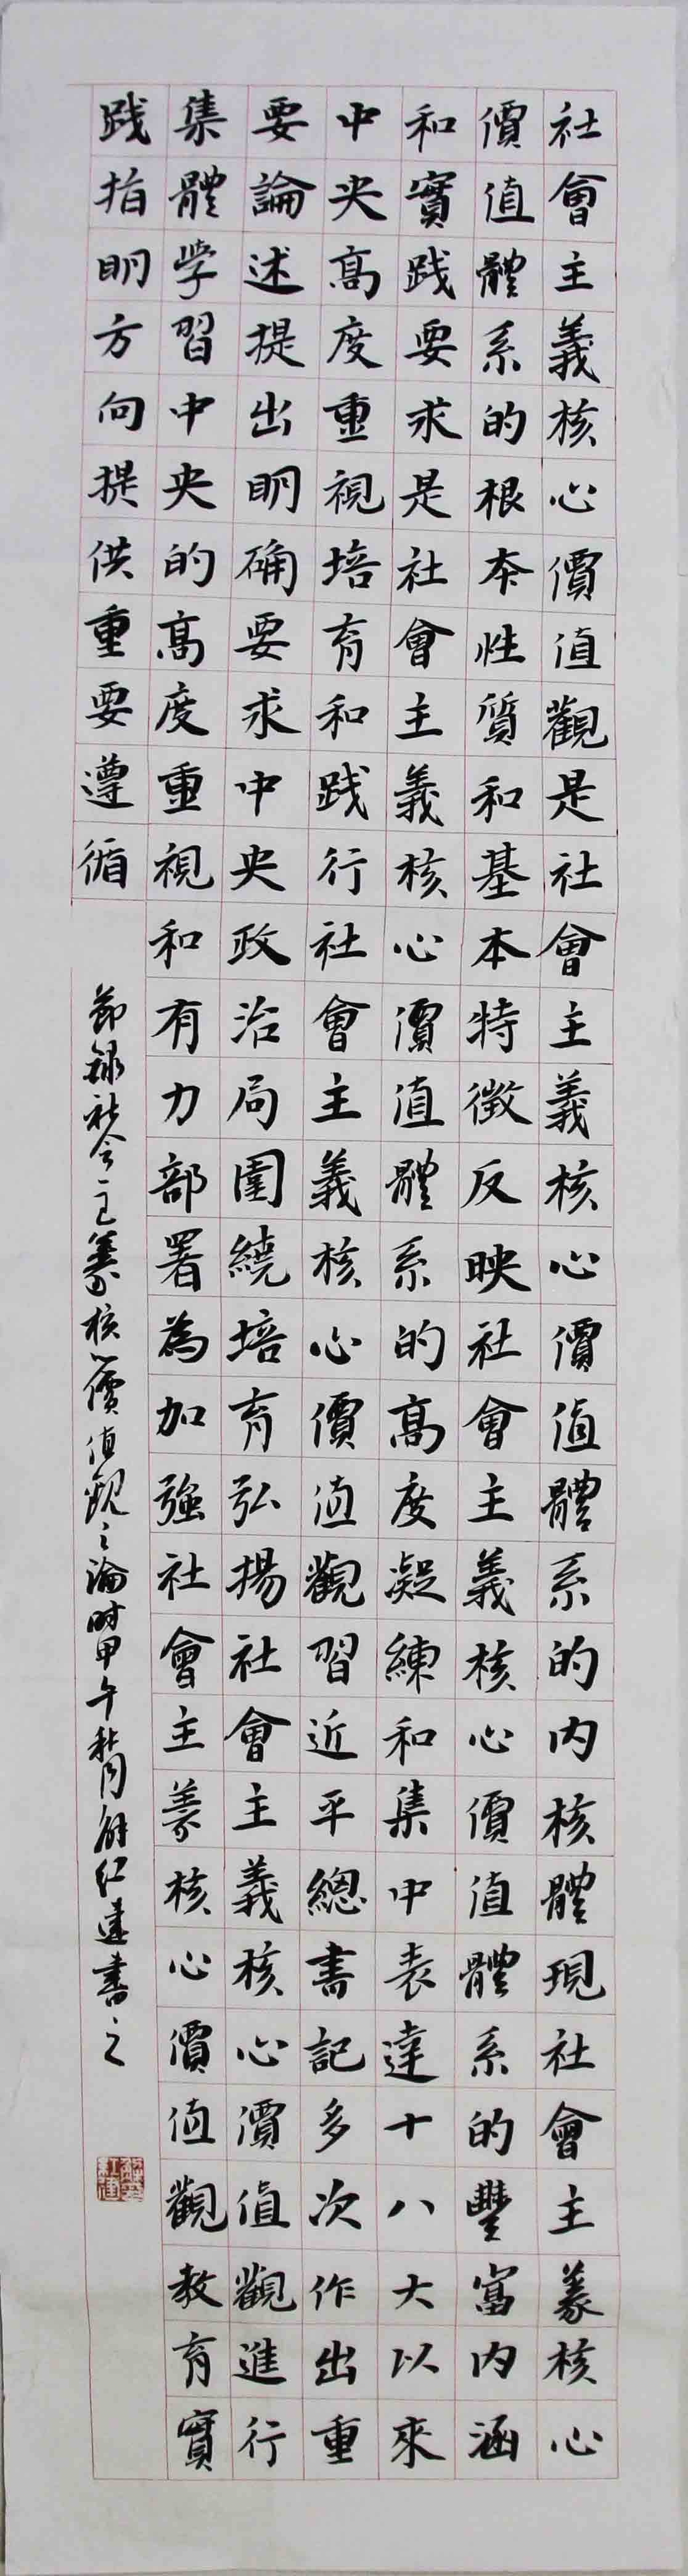 社會主義核心價值觀是社會主義核心價值體系的内核體現社會主義核心
價值體系的根本性質和基本特徵反映社會主義核心價值體系的豐富内涵
和實踐要求是社會主義核心價值體系的高度凝練和集中表達十八大以來
中央高度重視培育和踐行社會主義核心價值觀習近平總書記多次作出重
要論述提出明确要求中央政治局圍繞培育弘揚社會主義核心價值觀進行
集體學習中央的高度重視和有力部署為加強社會主義核心價值觀教育實
踐指明方向提供重要遵循
節録社会主義核心價值觀之論時甲午秋月解紅建書之